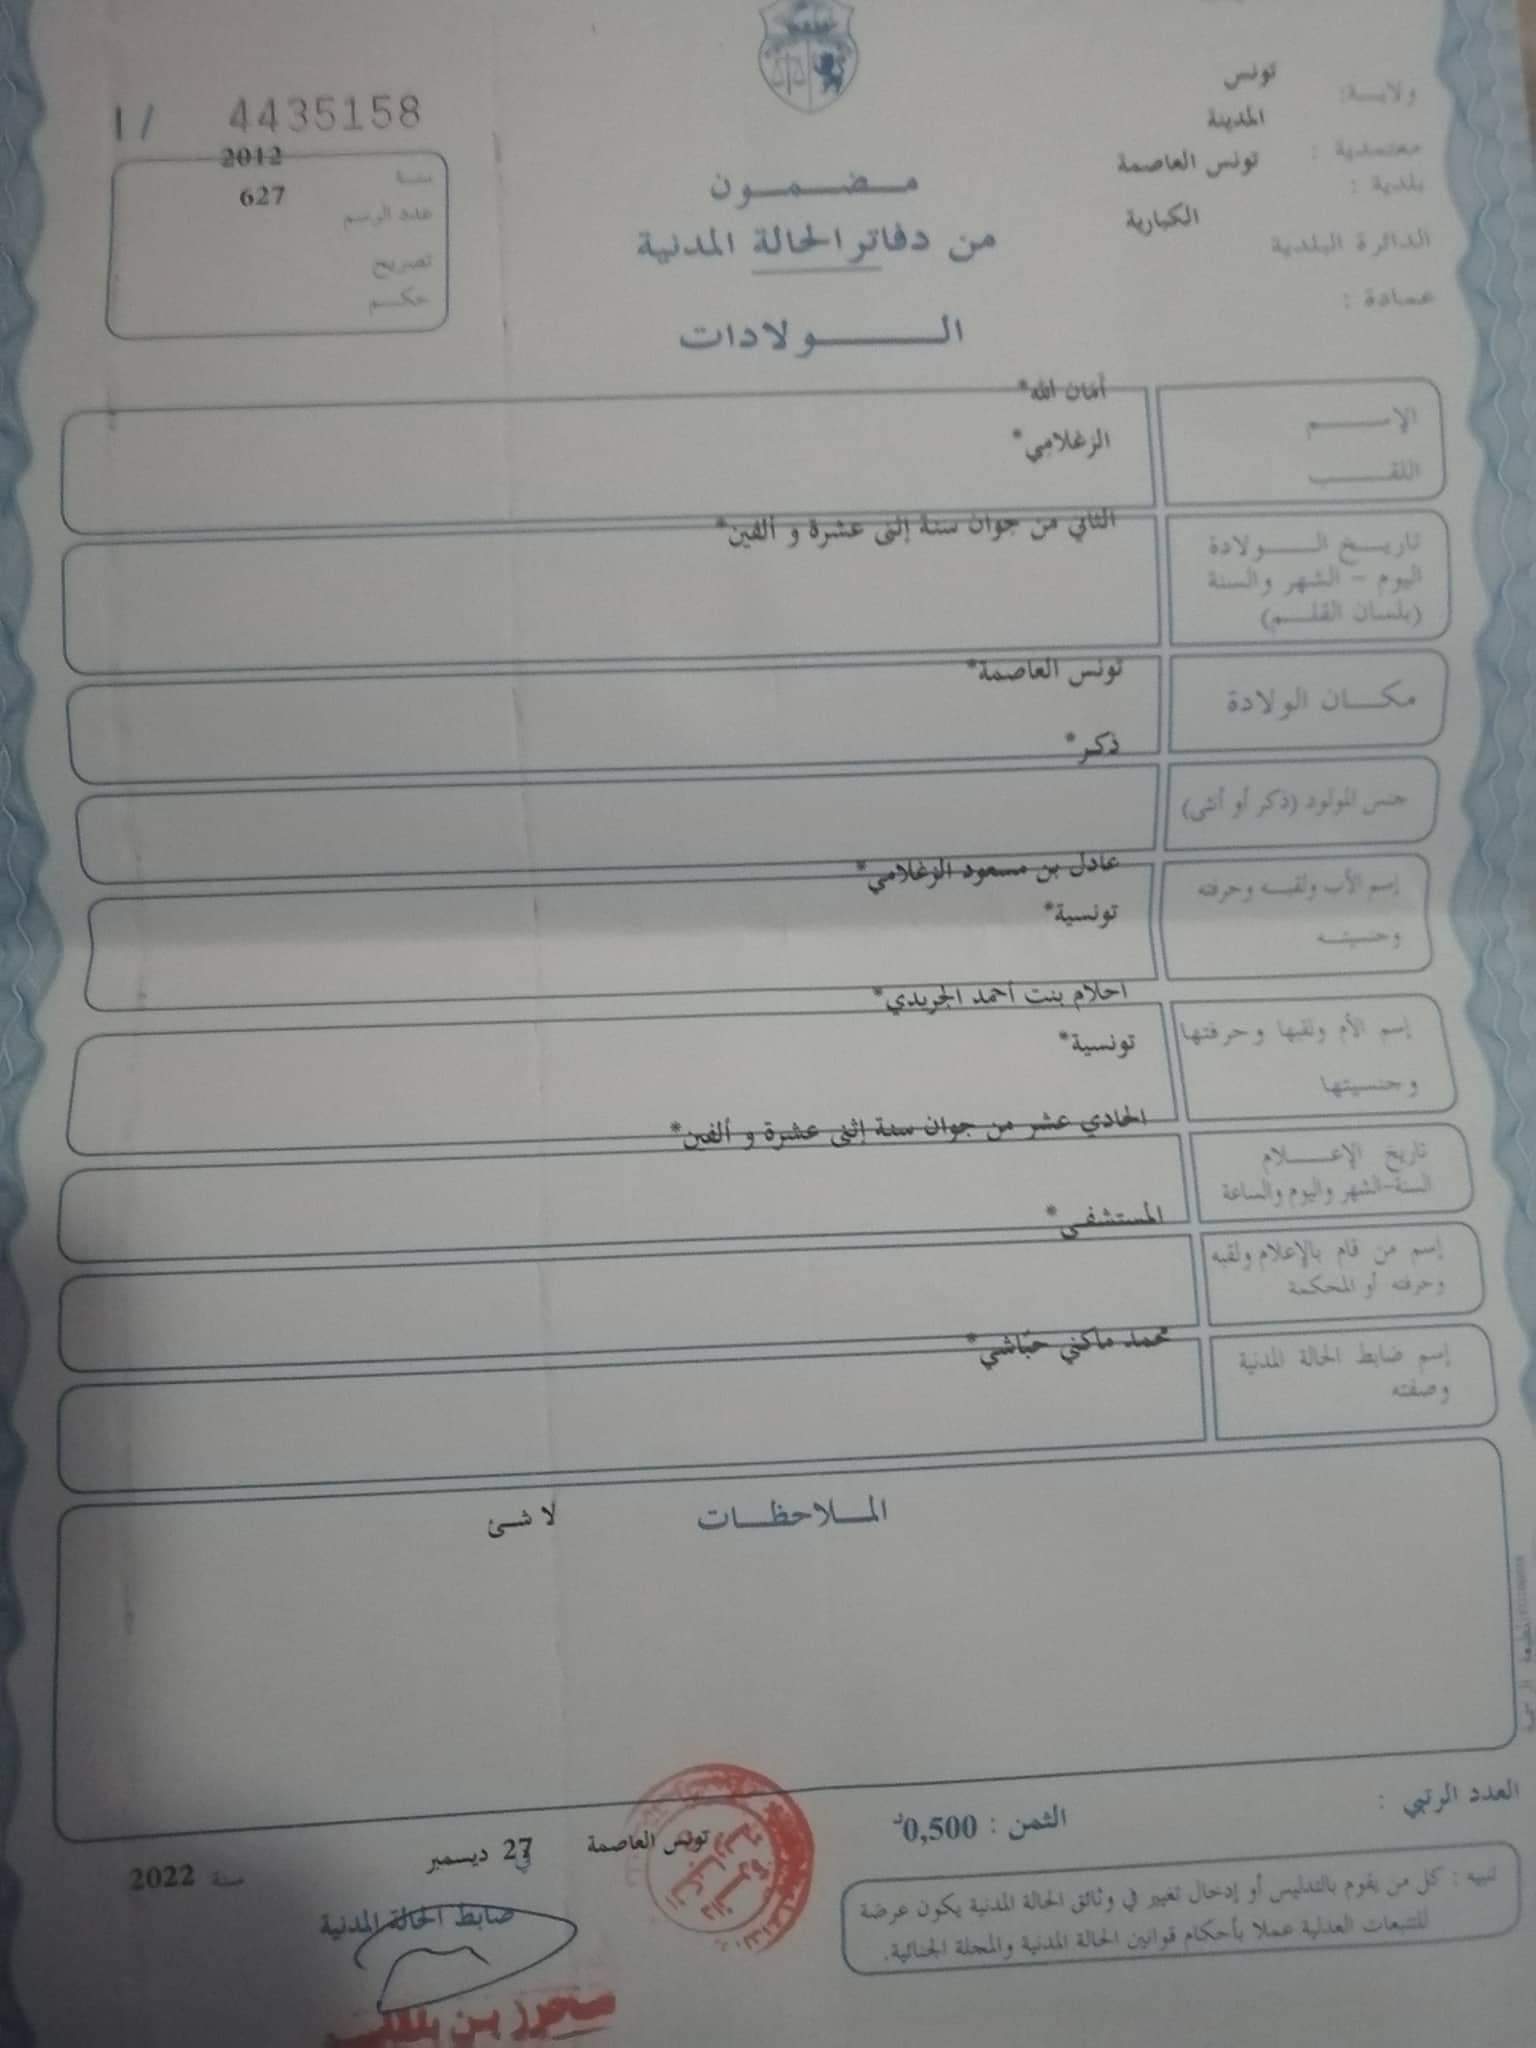 ولايـة: تونس
معتمدية : المدينة
بلدية : تونس العاصمة
الدائرة البلدية الكبارية
عمادة :
مـضـمـون
من دفاتر الحالة المدنية
الـولادات
4435158 / I
سنة 2012
عدد الرسم 627
تصريح
حكم
الإسـم أمان الله*
اللقـب الزغلامي*
تاريـخ الـولادة
اليوم - الشهر والسنة
(بلسان القلـم)
الثاني من جوان سنة إثنى عشرة و ألفين*
مكـان الولادة تونس العاصمة*
جنس المولود (ذكر أو أنثى) ذكر*
إسم الأب ولقبـه وحرفته عادل بن مسعود الزغلامي*
وجنسيتـه تونسية*
إسم الأم ولقبها وحرفتها احلام بنت أحمد الجريدي*
وجنسيتها تونسية*
تاريخ الإعـلام
السنة-الشهر واليوم والساعة
الحادي عشر من جوان سنة إثنى عشرة و ألفين*
إسم من قام بالإعلام ولقبه
وحرفته أو المحكمة
المستشفى*
إسم ضابط الحالة المدنية
وصفته
محمد ماكني حبّاشي*
المـلاحظـات لا شئ
العدد الرتبي :
الثمن : 0,500د
تونس العاصمة في 27 ديسمبر سنة 2022
ضابط الحالة المدنية
تنبيه : كل من يقوم بالتدليس أو إدخال تغيير في وثائق الحالة المدنية يكون عرضة
للتتبعات العدلية عملا بأحكام قوانين الحالة المدنية والمجلة الجنائية.
محرز بن